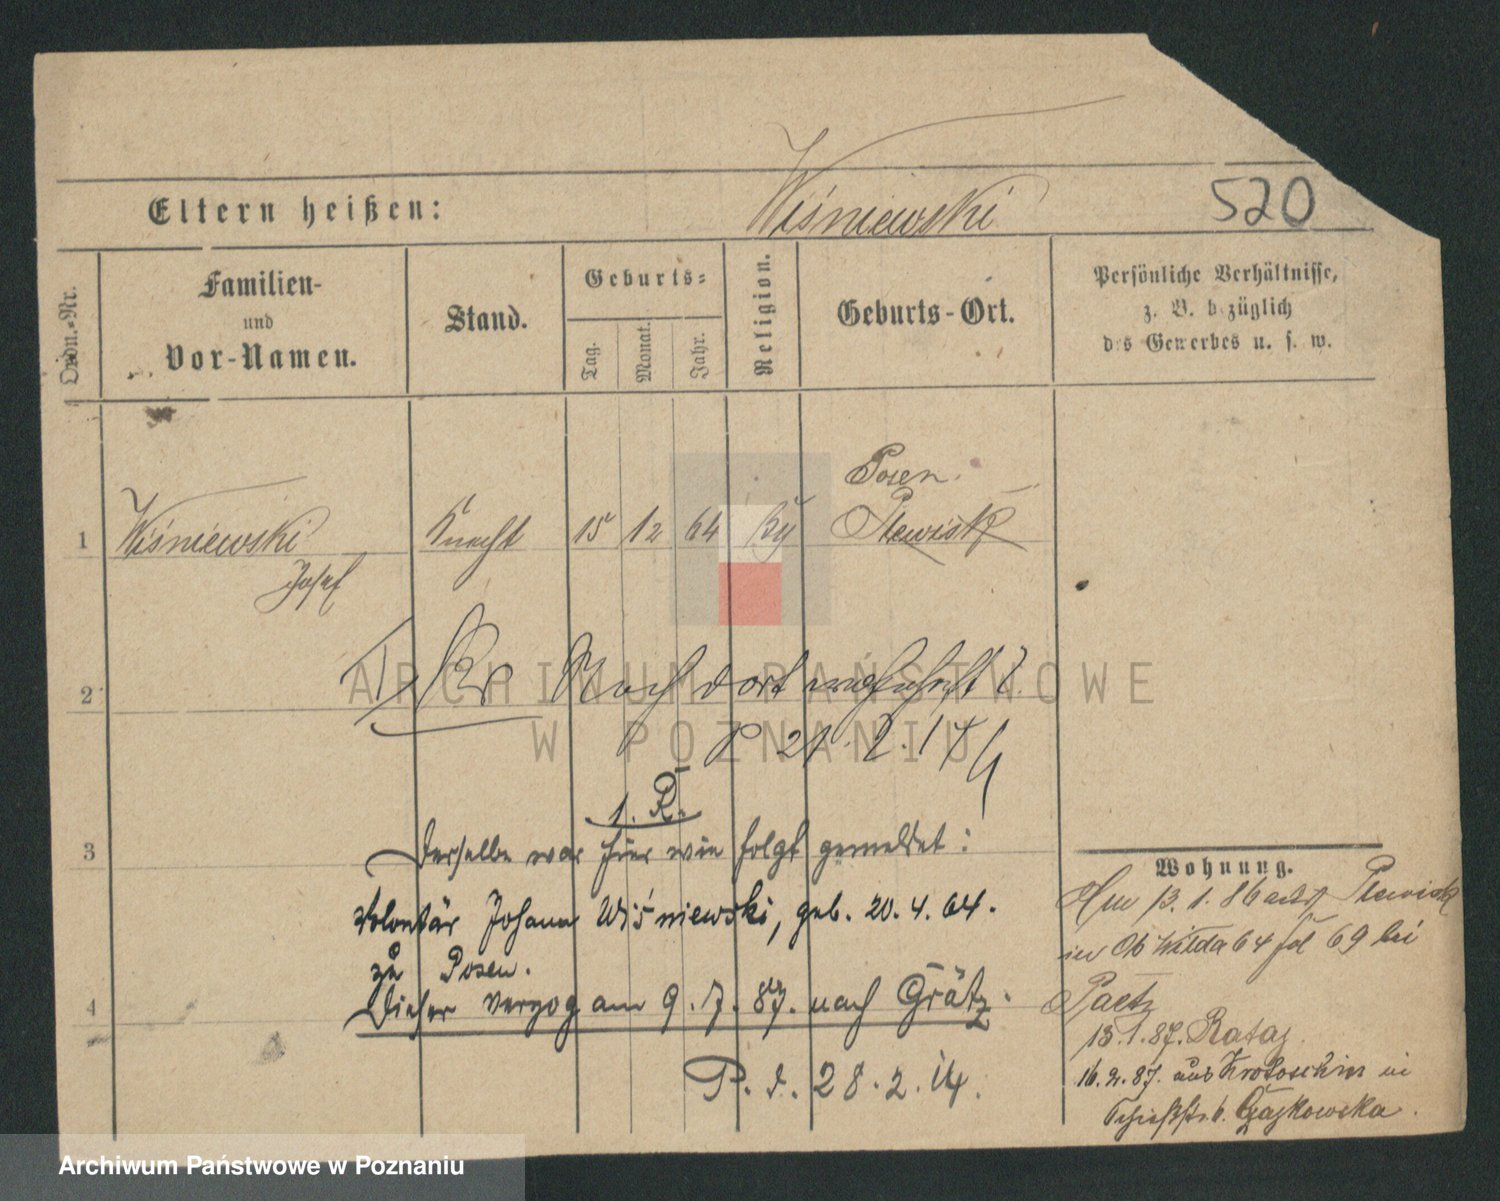 Eltern heißen: Wiśniewski 520
Ordn.-Nr.
Familien-
und
Vor-Namen.
Stand.
Geburts-
Tag.
Monat.
Jahr.
Religion.
Geburts-Ort.
Persönliche Verhältnisse,
z. B. bezüglich
des Gewerbes u. s. w.
Posen.
1 Wiśniewski Knecht 15 12 64 Plewisk
Josef
2 Noch dort wohnhaft?
P 21. 2. 14
1. R.
3 Derselbe war hier wie folgt gemeldet:
Volontär Johann Wiśniewski, geb. 20. 4. 64.
zu Posen.
4 Dieser verzog am 9. 7. 87. nach Grätz.
P. d. 28. 2. 14.
Wohnung.
13. 1. 86 Plewisk
in Ob Wilda 64 69 bei
Paetz
13. 1. 87. Rataj
16. 2. 87. aus Krotoschin in
6. Czajkowska.
ARCHIWUM PAŃSTWOWE
W POZNANIU
Archiwum Państwowe w Poznaniu